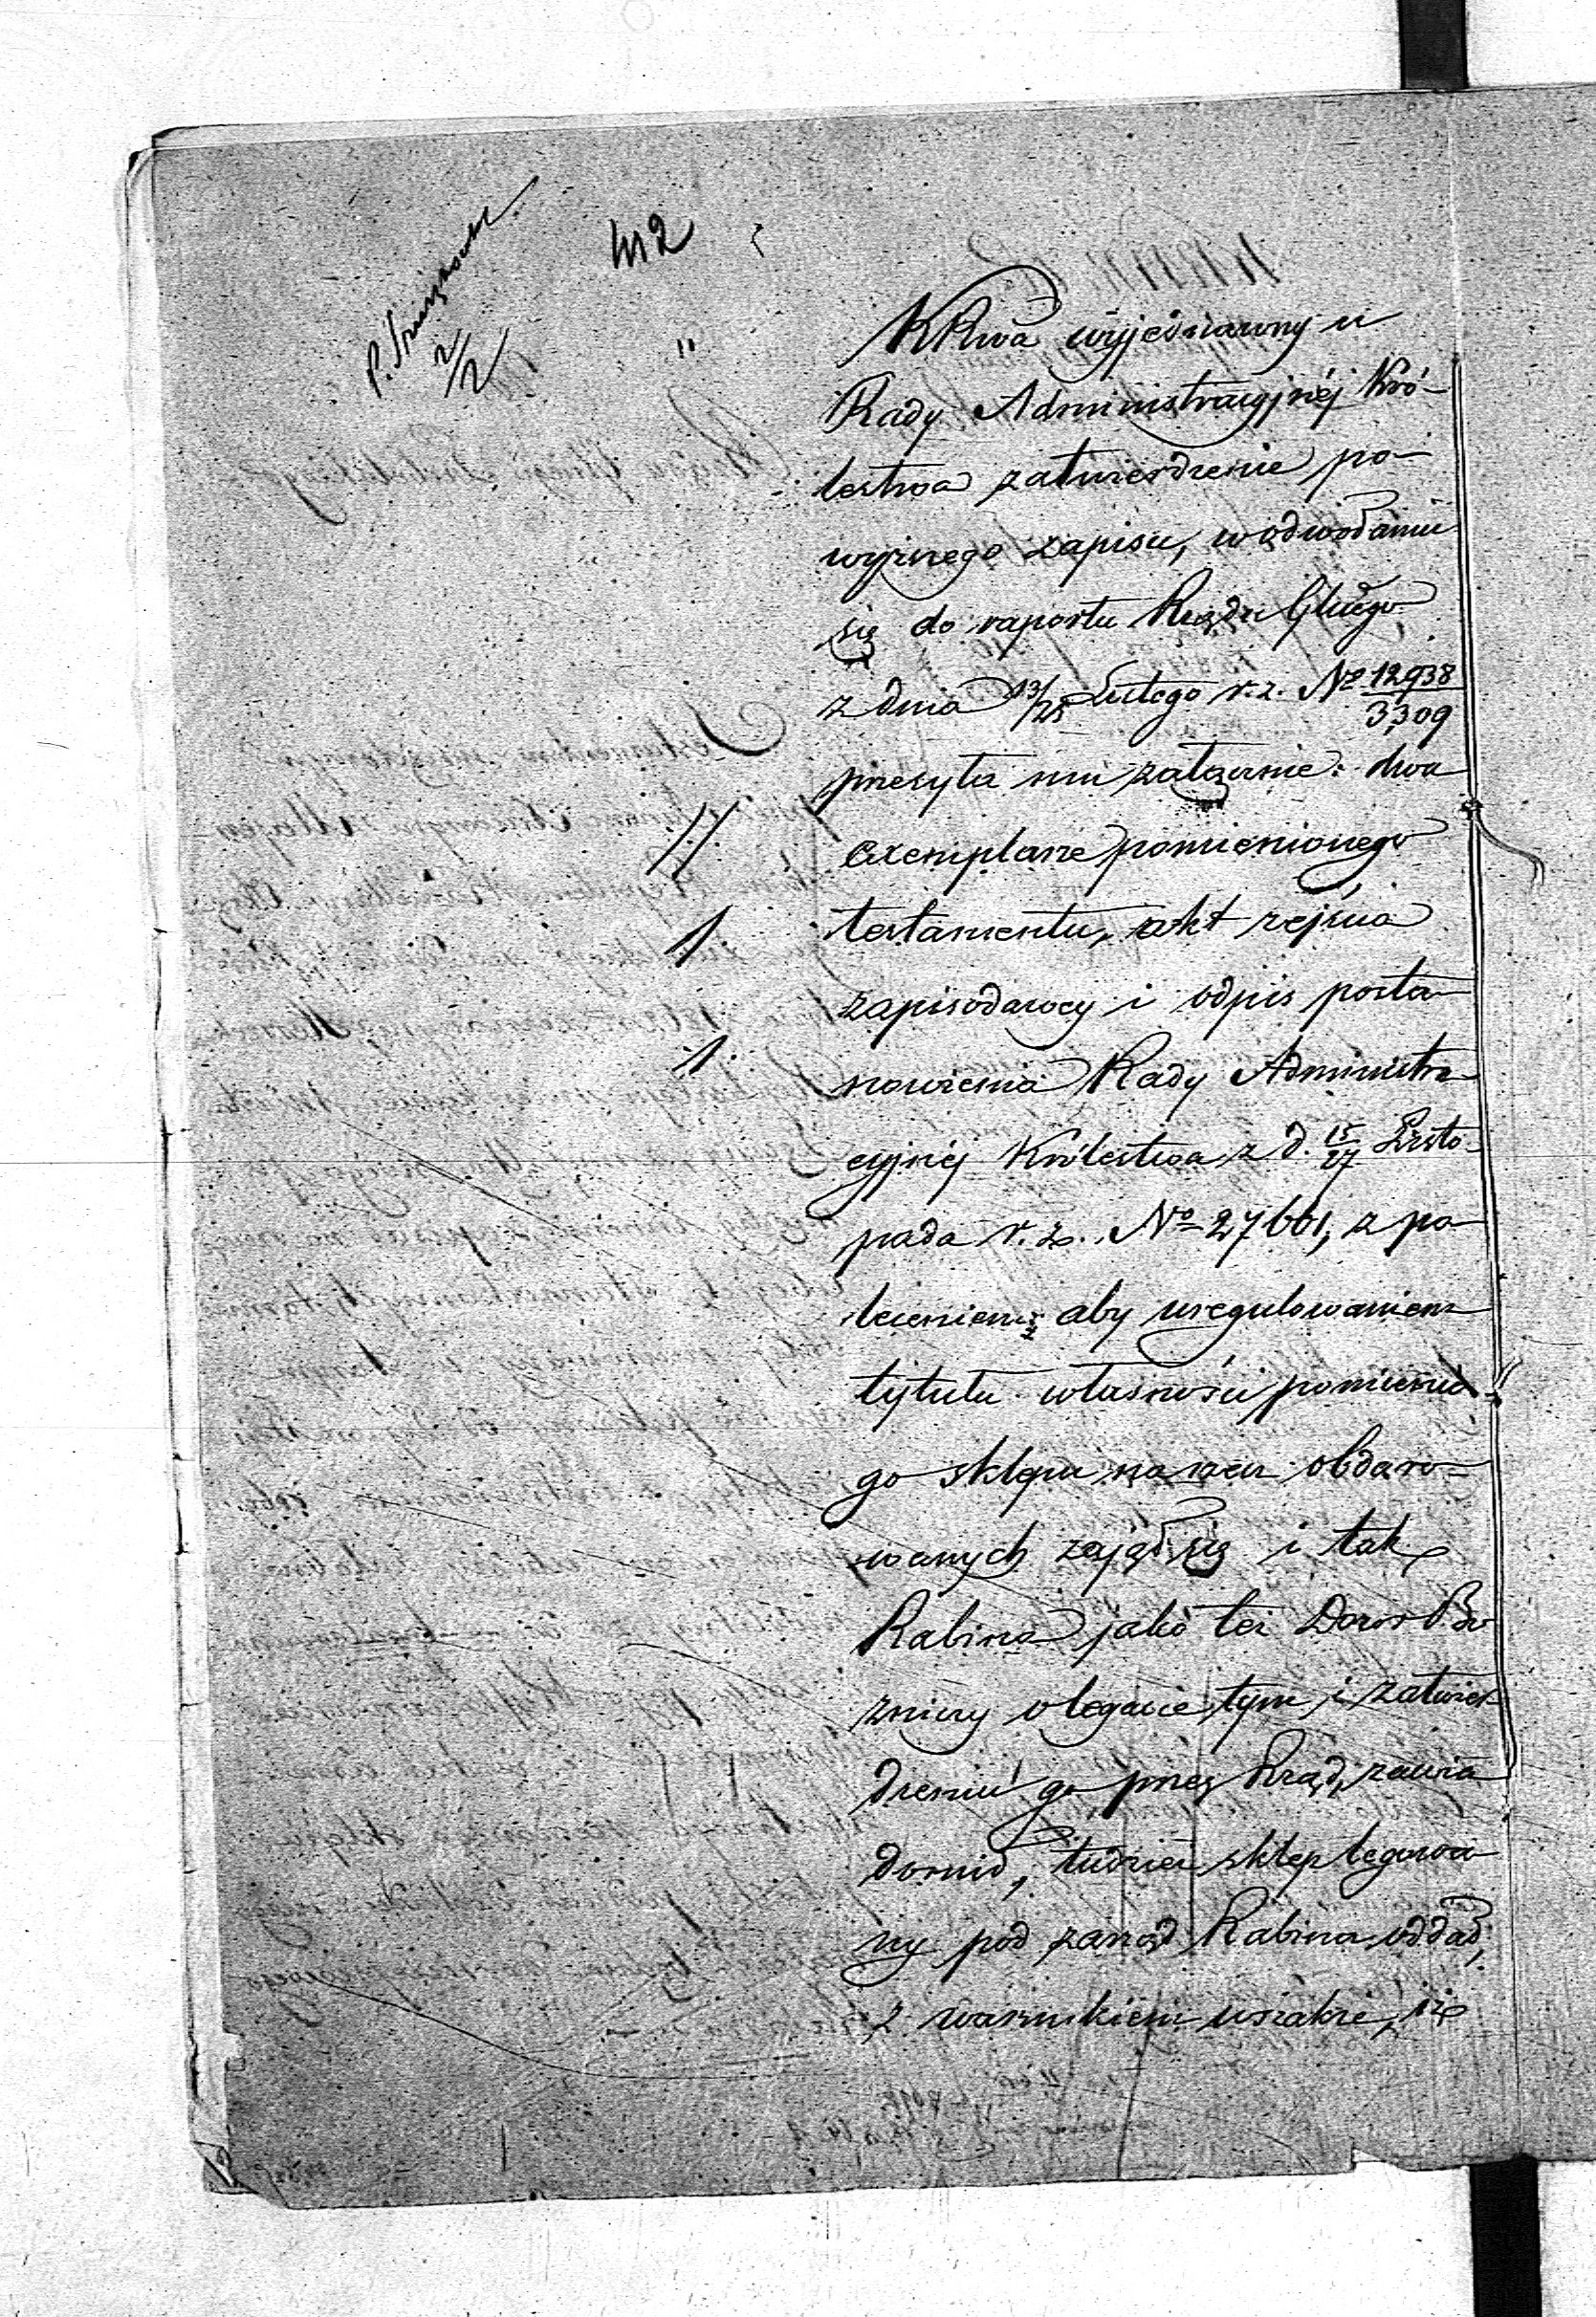 412
2/2
KRwa wyjednawszy u
Rady Administracyjnéj Kró-
lestwa zatwierdzenie po-
wyższego zapisu, w odwołaniu
się do raportu Rządu Głnego
z dnia 13/25 Lutego r. z. No 12938/3309
przesyła mu załącznie: dwa
exemplarze pomienionego
testamentu, akt zejścia
zapisodawcy i odpis posta-
nowienia Rady Administra-
cyjnéj Królestwa z d. 15/27 Listo-
pada r. z. No 27661, z po-
leceniem aby uregulowaniem
tytułu własności pomienio-
go sklepu na rzecz obdaro-
wanych zajął się i tak
Rabina jako też Dozór Bo
żniczy o legacie tym i zatwier-
dzeniu go przez Rząd, zawia
domił, tudzież sklep legowa
ny pod zarząd Rabina oddał,
z warunkiem wszakże, iż
//
1
1.